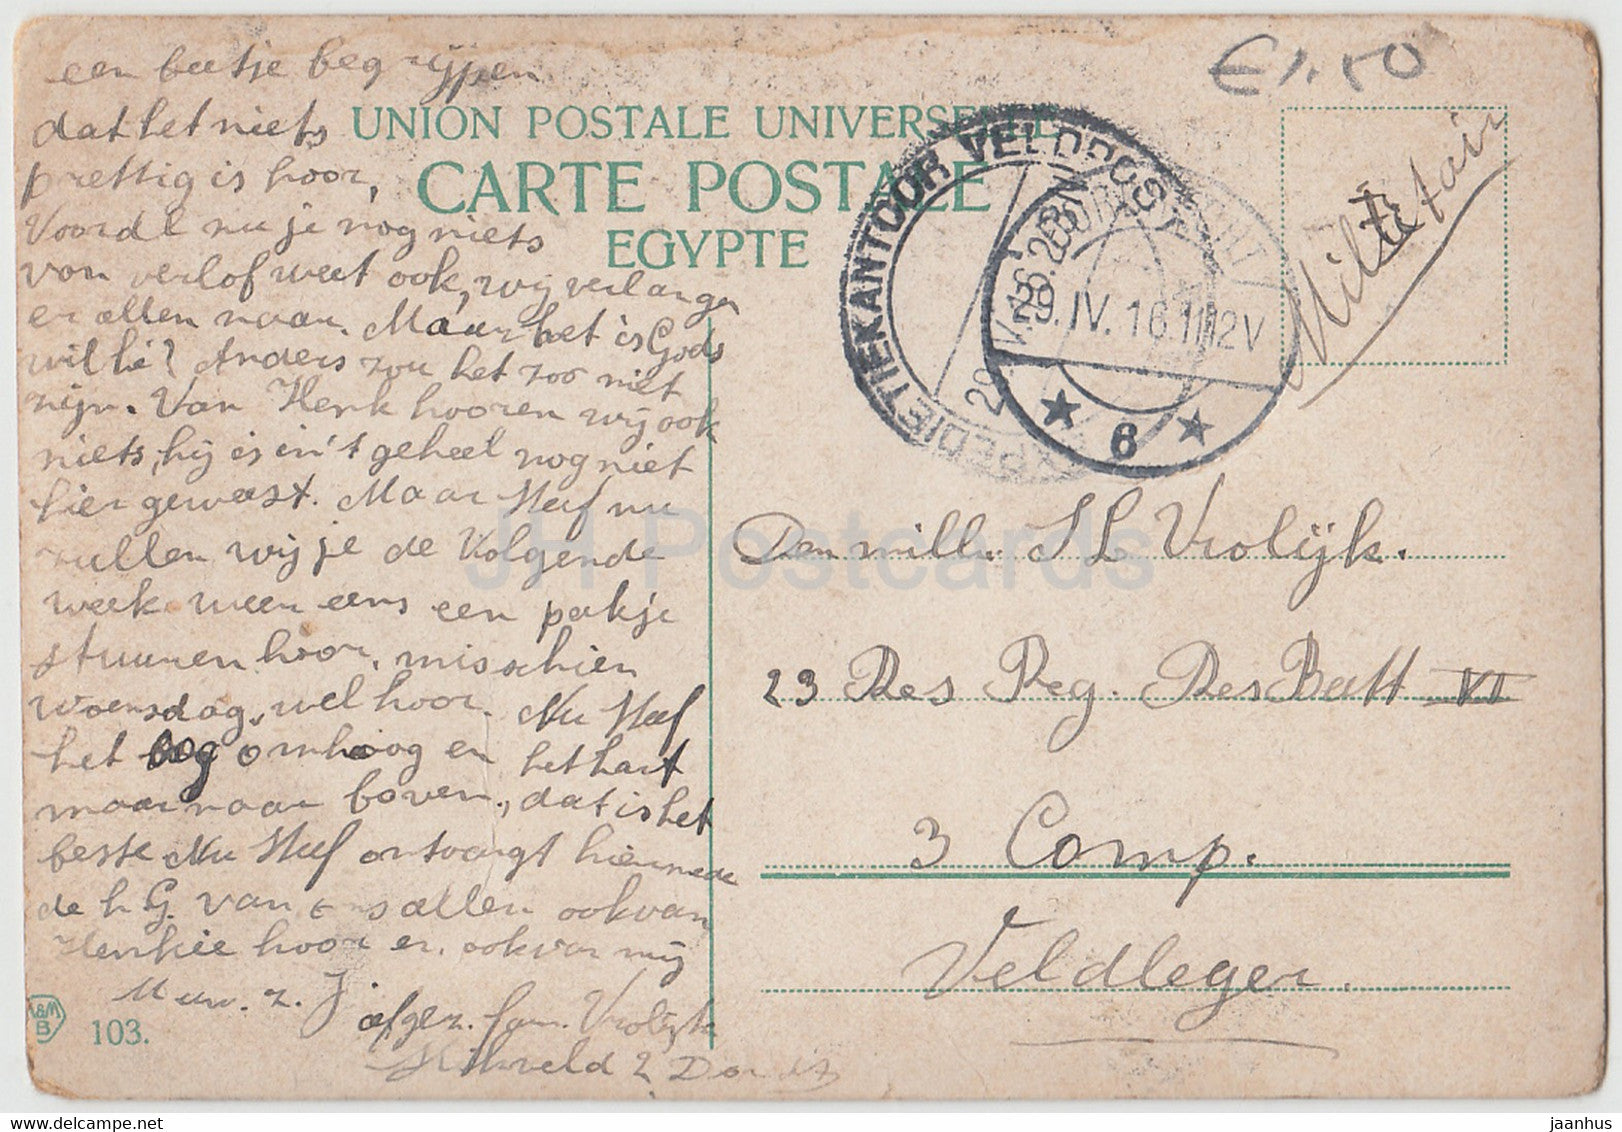 een beetje begrijpen
dat het niets
prettig is hoor,
Voorde nu je nog niets
van verlof weet ook, wij verlangen
er allen naar. Maar het is Gods
wil hé? Anders zou het zoo niet
zijn. Van Henk hooren wij ook
niets, hij is in 't geheel nog niet
hier geweest. Maar Steef nu
zullen wij je de Volgende
week weer eens een pakje
stuuren hoor, misschien
woensdag, wel hoor. Nu Steef
het oog omhoog en het hart
maar naar boven, dat is het
beste Nu Steef ontvangt hiermede
de h G. van ons allen ook van
Henkie hoor er. ook van mij
Uw. z. J.
afgez. fam. Vrolijk
2
UNION POSTALE UNIVERSELLE
CARTE POSTALE
EGYPTE
103.
A&M
B
€1.50
Militair
EXPEDITIEKANTOOR VELDPOST
29.IV.16.11-12V
6
JH Postcards
Den mill. J L Vrolijk.
23 Res Reg. Res Batt VI
3 Comp.
Veldleger.
hip-post.com
jaanhus